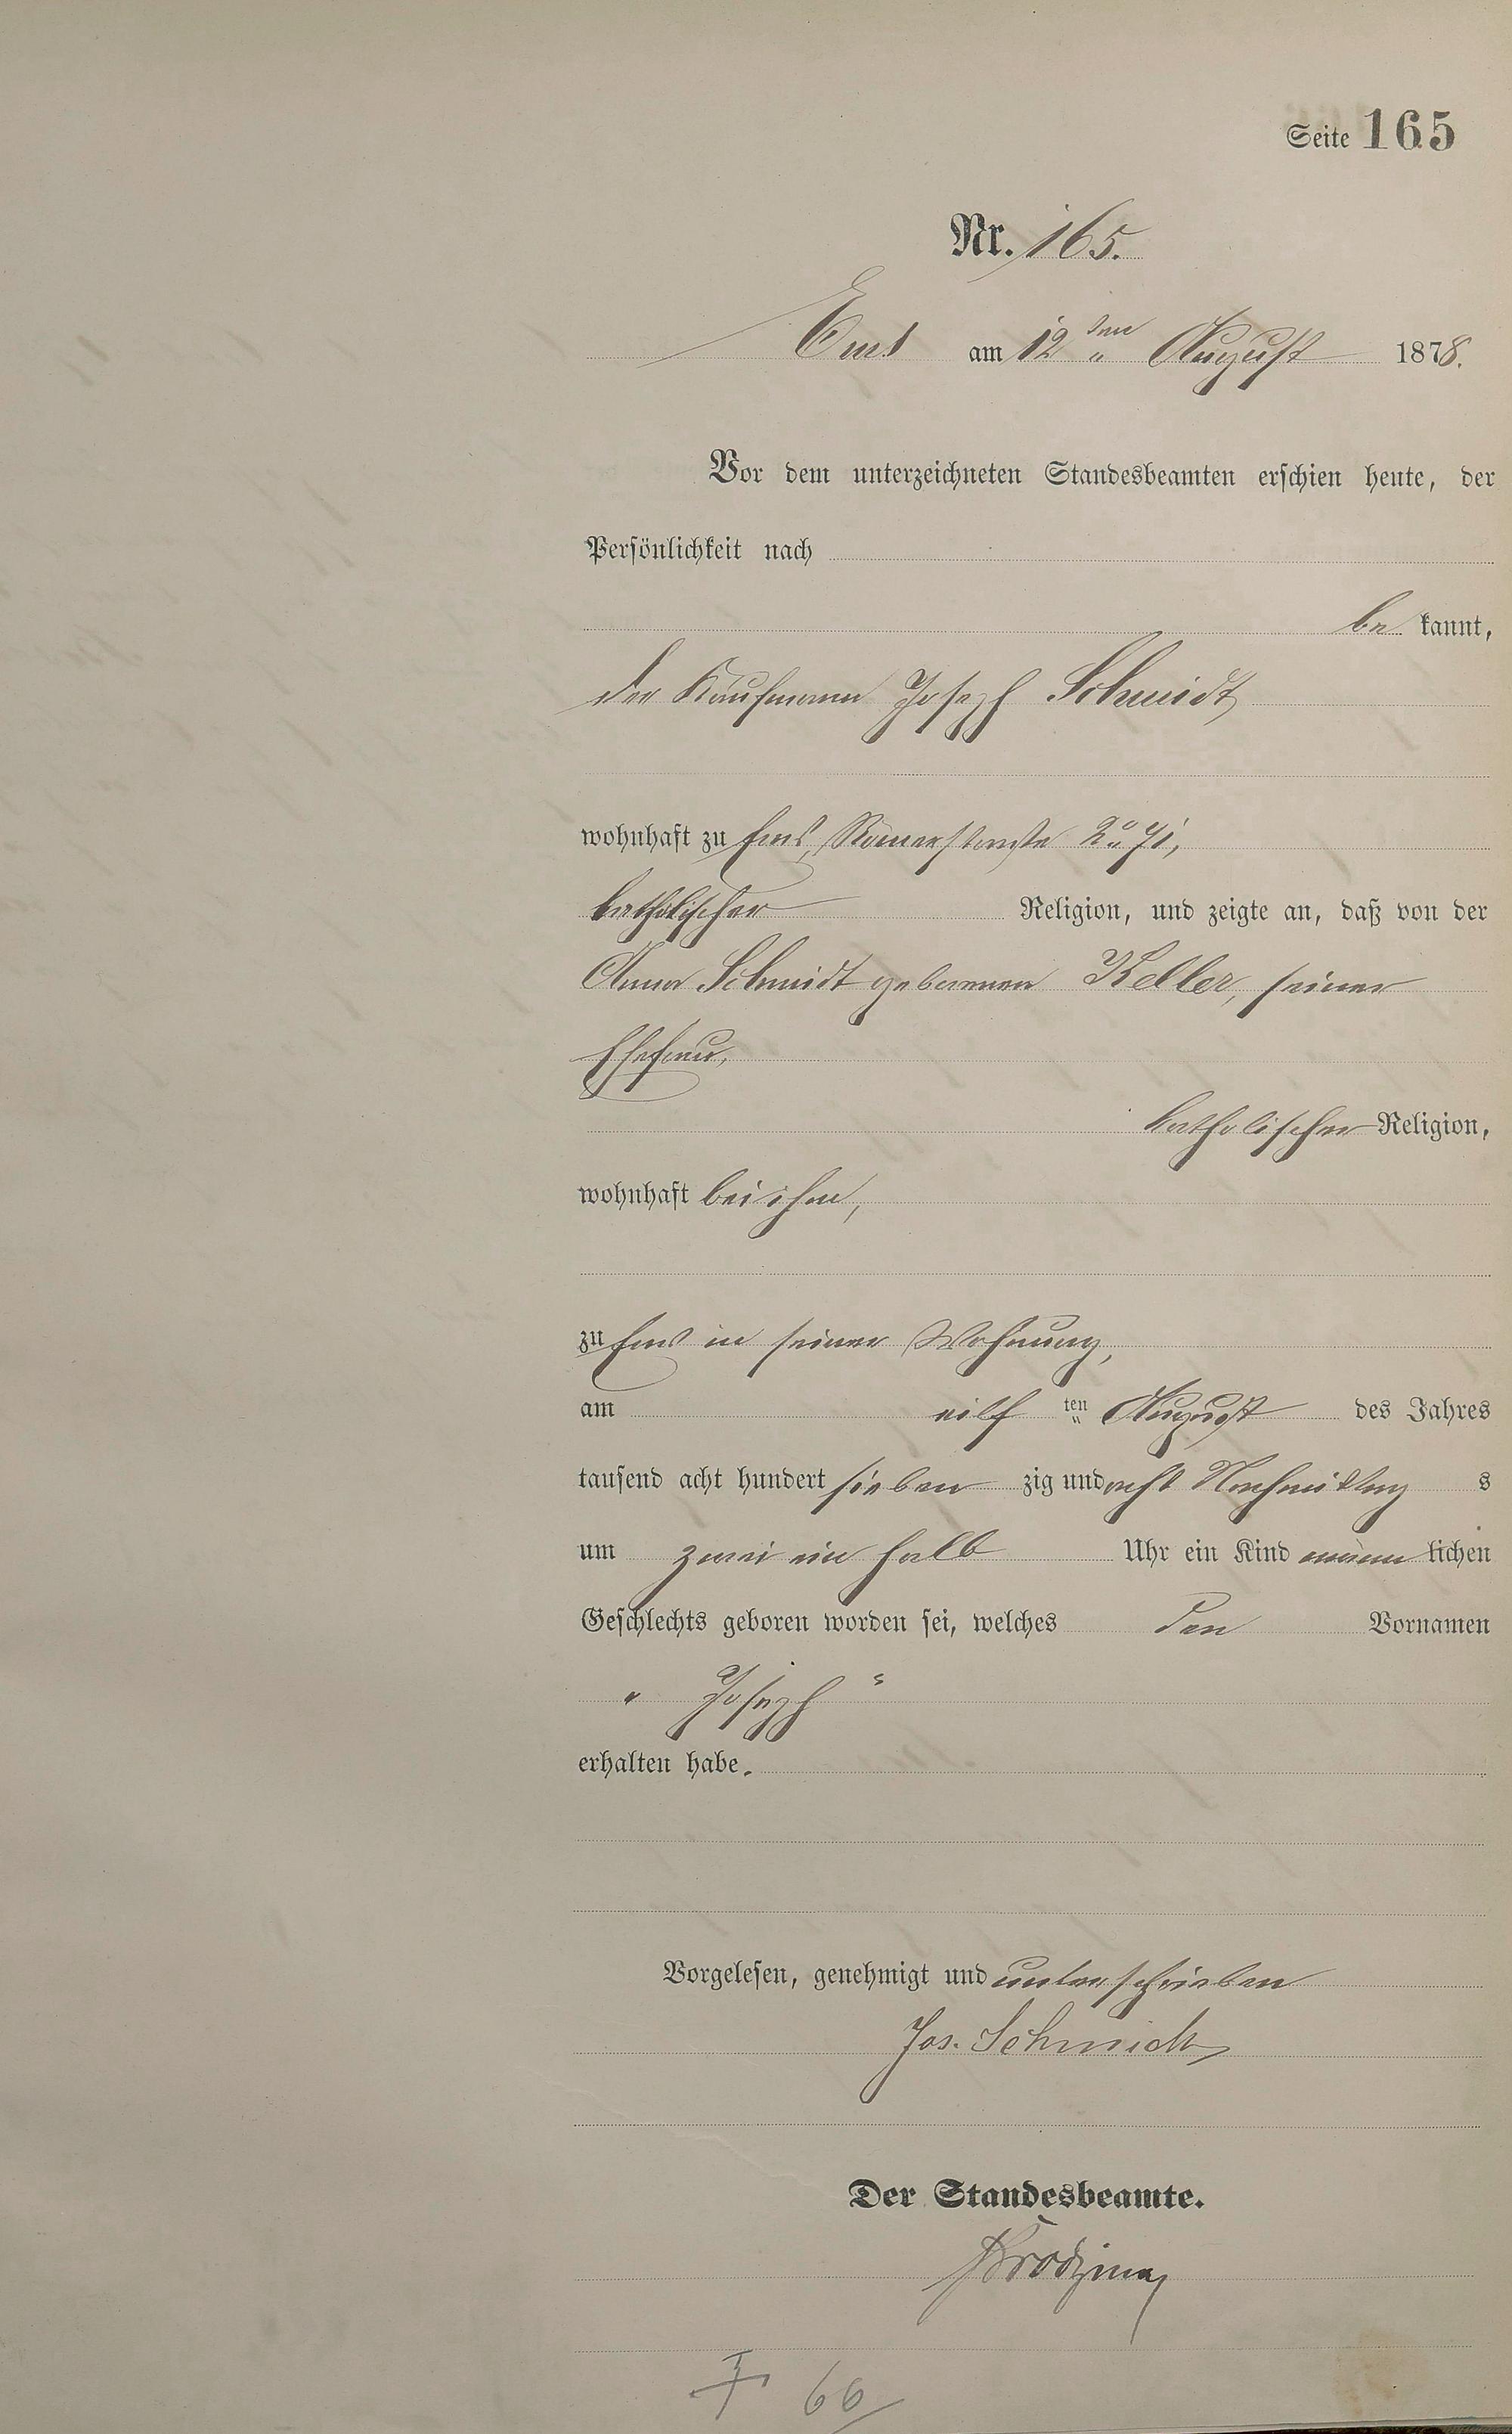 Seite 165
Nr. 165.
Ems am 12ten August 1878.
Vor dem unterzeichneten Standesbeamten erschien heute, der
Persönlichkeit nach
be kannt,
der Kaufmann Joseph Schmidt,
wohnhaft zu Ems, Römerstraße 71,
katholischer Religion, und zeigte an, daß von der
Anna Schmidt geborenen Keller, seiner
Ehefrau,
katholischer Religion,
wohnhaft bei ihm,
zu Ems in seiner Wohnung,
am eilf ten August des Jahres
tausend acht hundert sieben zig und acht Nachmittag s
um zwei ein halb Uhr ein Kind männ lichen
Geschlechts geboren worden sei, welches den Vornamen
„ Joseph “
erhalten habe.
Vorgelesen, genehmigt und unterschrieben
Jos. Schmidt
Der Standesbeamte.
66